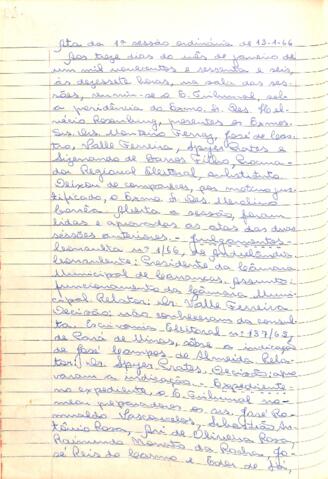 Ata da 1ª sessão ordinária de 13-1-66
Aos treze dias do mês de janeiro de
um mil novecentos e sessenta e seis,
às dezessete horas, na sala das ses-
sões, reuniu-se o E. Tribunal, sob
a presidência do Exmo. Sr. Des.
presentes os Exmos.
Srs. Drs. Monteiro Ferraz, José de Cas-
tro, Valle Ferreira, Spyer Prates e
de Barros Filho, Procura-
dor Regional Eleitoral, substituto.
Deixou de comparecer, por motivo jus-
tificado, o Exmo. Sr. Des. Merolino
Corrêa. Aberta a sessão, foram
lidas e aprovadas as atas das duas
sessões anteriores. - Julgamentos -
Consulta nº 1/66, de
Consulente: Presidente da Câmara
Municipal de assunto:
funcionamento da Câmara Muni-
cipal. Relator: Dr. Valle Ferreira
Decisão: não conheceram da consul-
ta. Escrivania Eleitoral nº 137/65,
de Pará de Minas, sôbre a indicação
de José Campos de Almeida. Rela-
tor: Dr. Spyer Prates. Decisão: apro-
varam a indicação. - Expediente -
no expediente, o E. Tribunal no-
meou preparadores os srs. José Ro-
mualdo Vasconcelos, Sebastião An-
tônio Rosa, Ari de Oliveira Rosa,
Raimundo Nonato da Rocha, Jo-
sé Reis do Carmo e Eder de